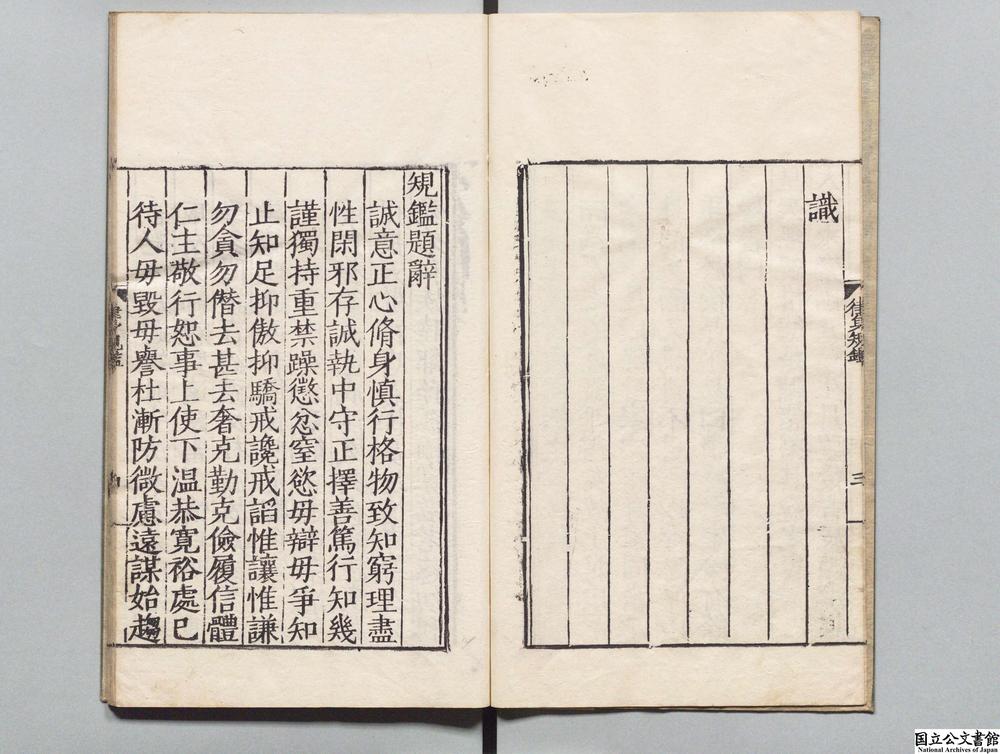 識
律身規鑑
三
規鑑題辭
誠意正心脩身慎行格物致知窮理盡
性閑邪存誠執中守正擇善篤行知幾
謹獨持重禁躁懲忿窒慾毋辯毋爭知
止知足抑傲抑驕戒讒戒謟惟讓惟謙
勿貪勿僭去甚去奢克勤克儉履信體
仁主敬行恕事上使下温恭寛裕處已
待人毋毀毋譽杜漸防微慮遠謀始趨
律身規鑑
国立公文書館
National Archives of Japan